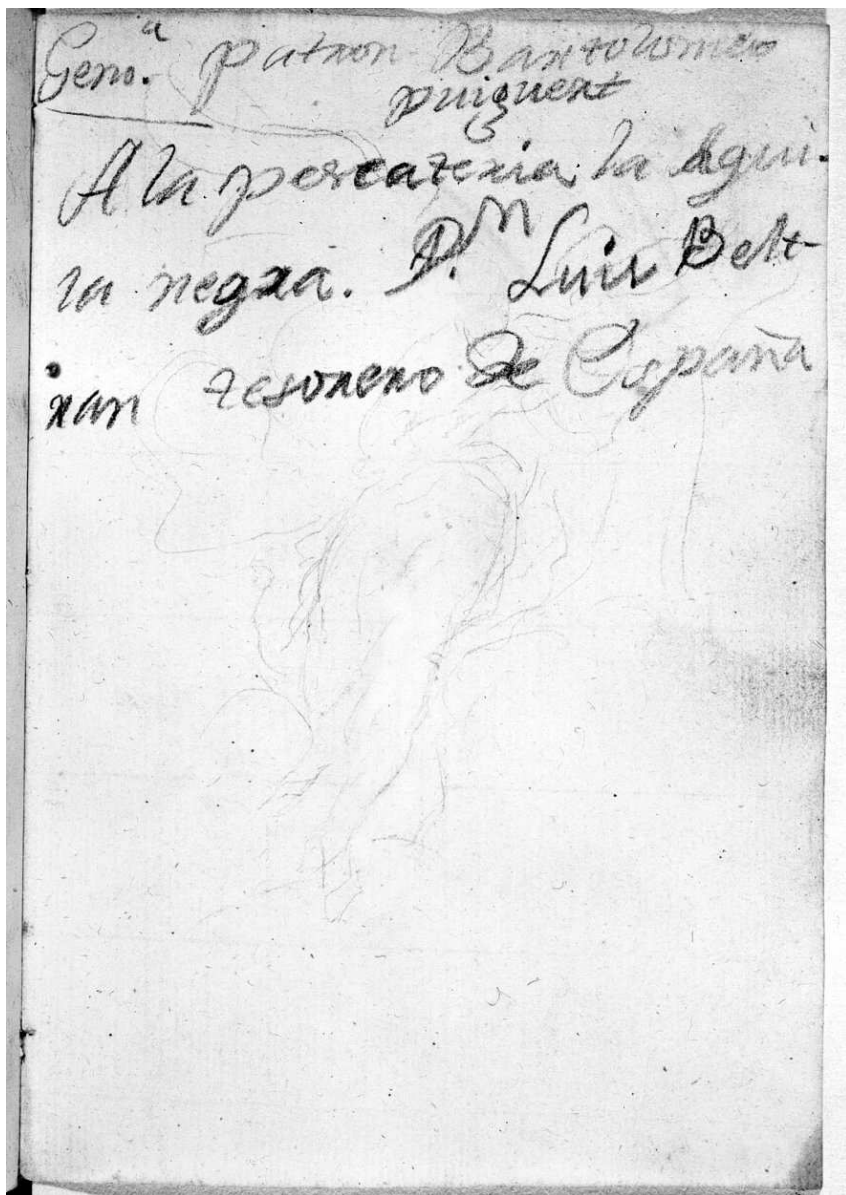 Geno.ª patron Bartolomeo
puiguert
A la pescateria la Agui-
la negra. D.ⁿ Luis Belt-
ran tesorero de España